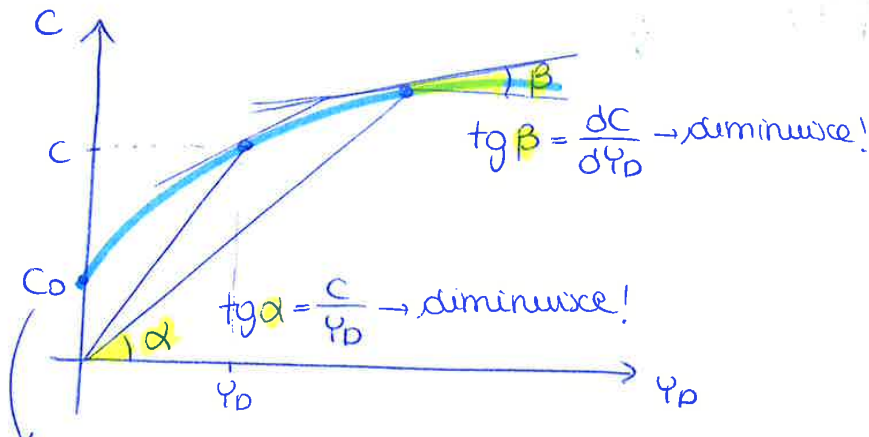 C
β
tg β = dC/dYD → diminuisce!
C
C0
tg α = C/YD → diminuisce!
α
YD
YD